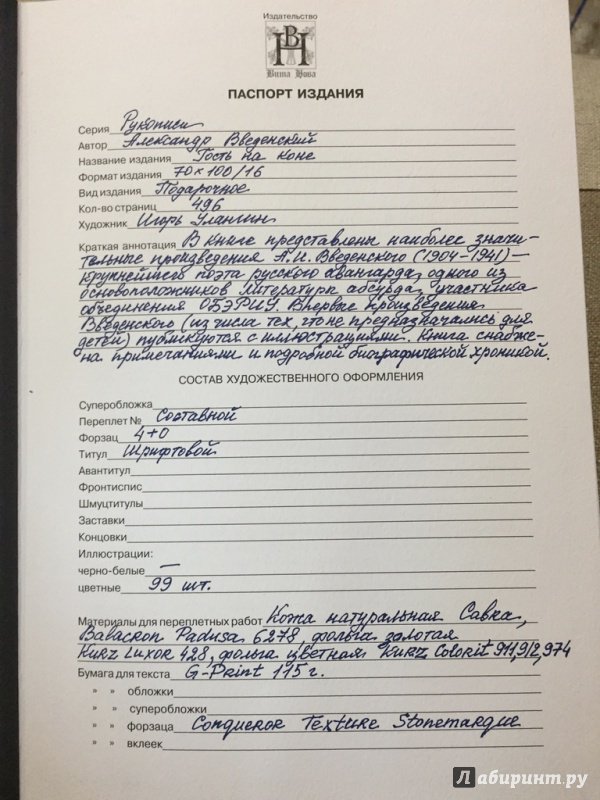 Издательство
ВН
Вита Нова
ПАСПОРТ ИЗДАНИЯ
Серия Рукописи
Автор Александр Введенский
Название издания Гость на коне
Формат издания 70×100/16
Вид издания Подарочное
Кол-во страниц 496
Художник Игорь Улангин
Краткая аннотация В книге представлены наиболее значи-
тельные произведения А.И. Введенского (1904–1941) –
крупнейшего поэта русского авангарда, одного из
основоположников литературы абсурда, участника
объединения ОБЭРИУ. Впервые произведения
Введенского (из числа тех, что не предназначались для
детей) публикуются с иллюстрациями. Книга снабже-
на примечаниями и подробной биографической хроникой.
СОСТАВ ХУДОЖЕСТВЕННОГО ОФОРМЛЕНИЯ
Суперобложка
Переплет № Составной
Форзац 4+0
Титул Шрифтовой
Авантитул
Фронтиспис
Шмуцтитулы
Заставки
Концовки
Иллюстрации:
черно-белые —
цветные 99 шт.
Материалы для переплетных работ Кожа натуральная Савка,
Balacron Padusa 6278, фольга золотая
Kurz Luxor 428, фольга цветная Kurz Colorit 911, 912, 974
Бумага для текста G-Print 115 г.
» » обложки
» » суперобложки
» » форзаца Conqueror Texture Stonemarque
» » вклеек
Лабиринт.ру